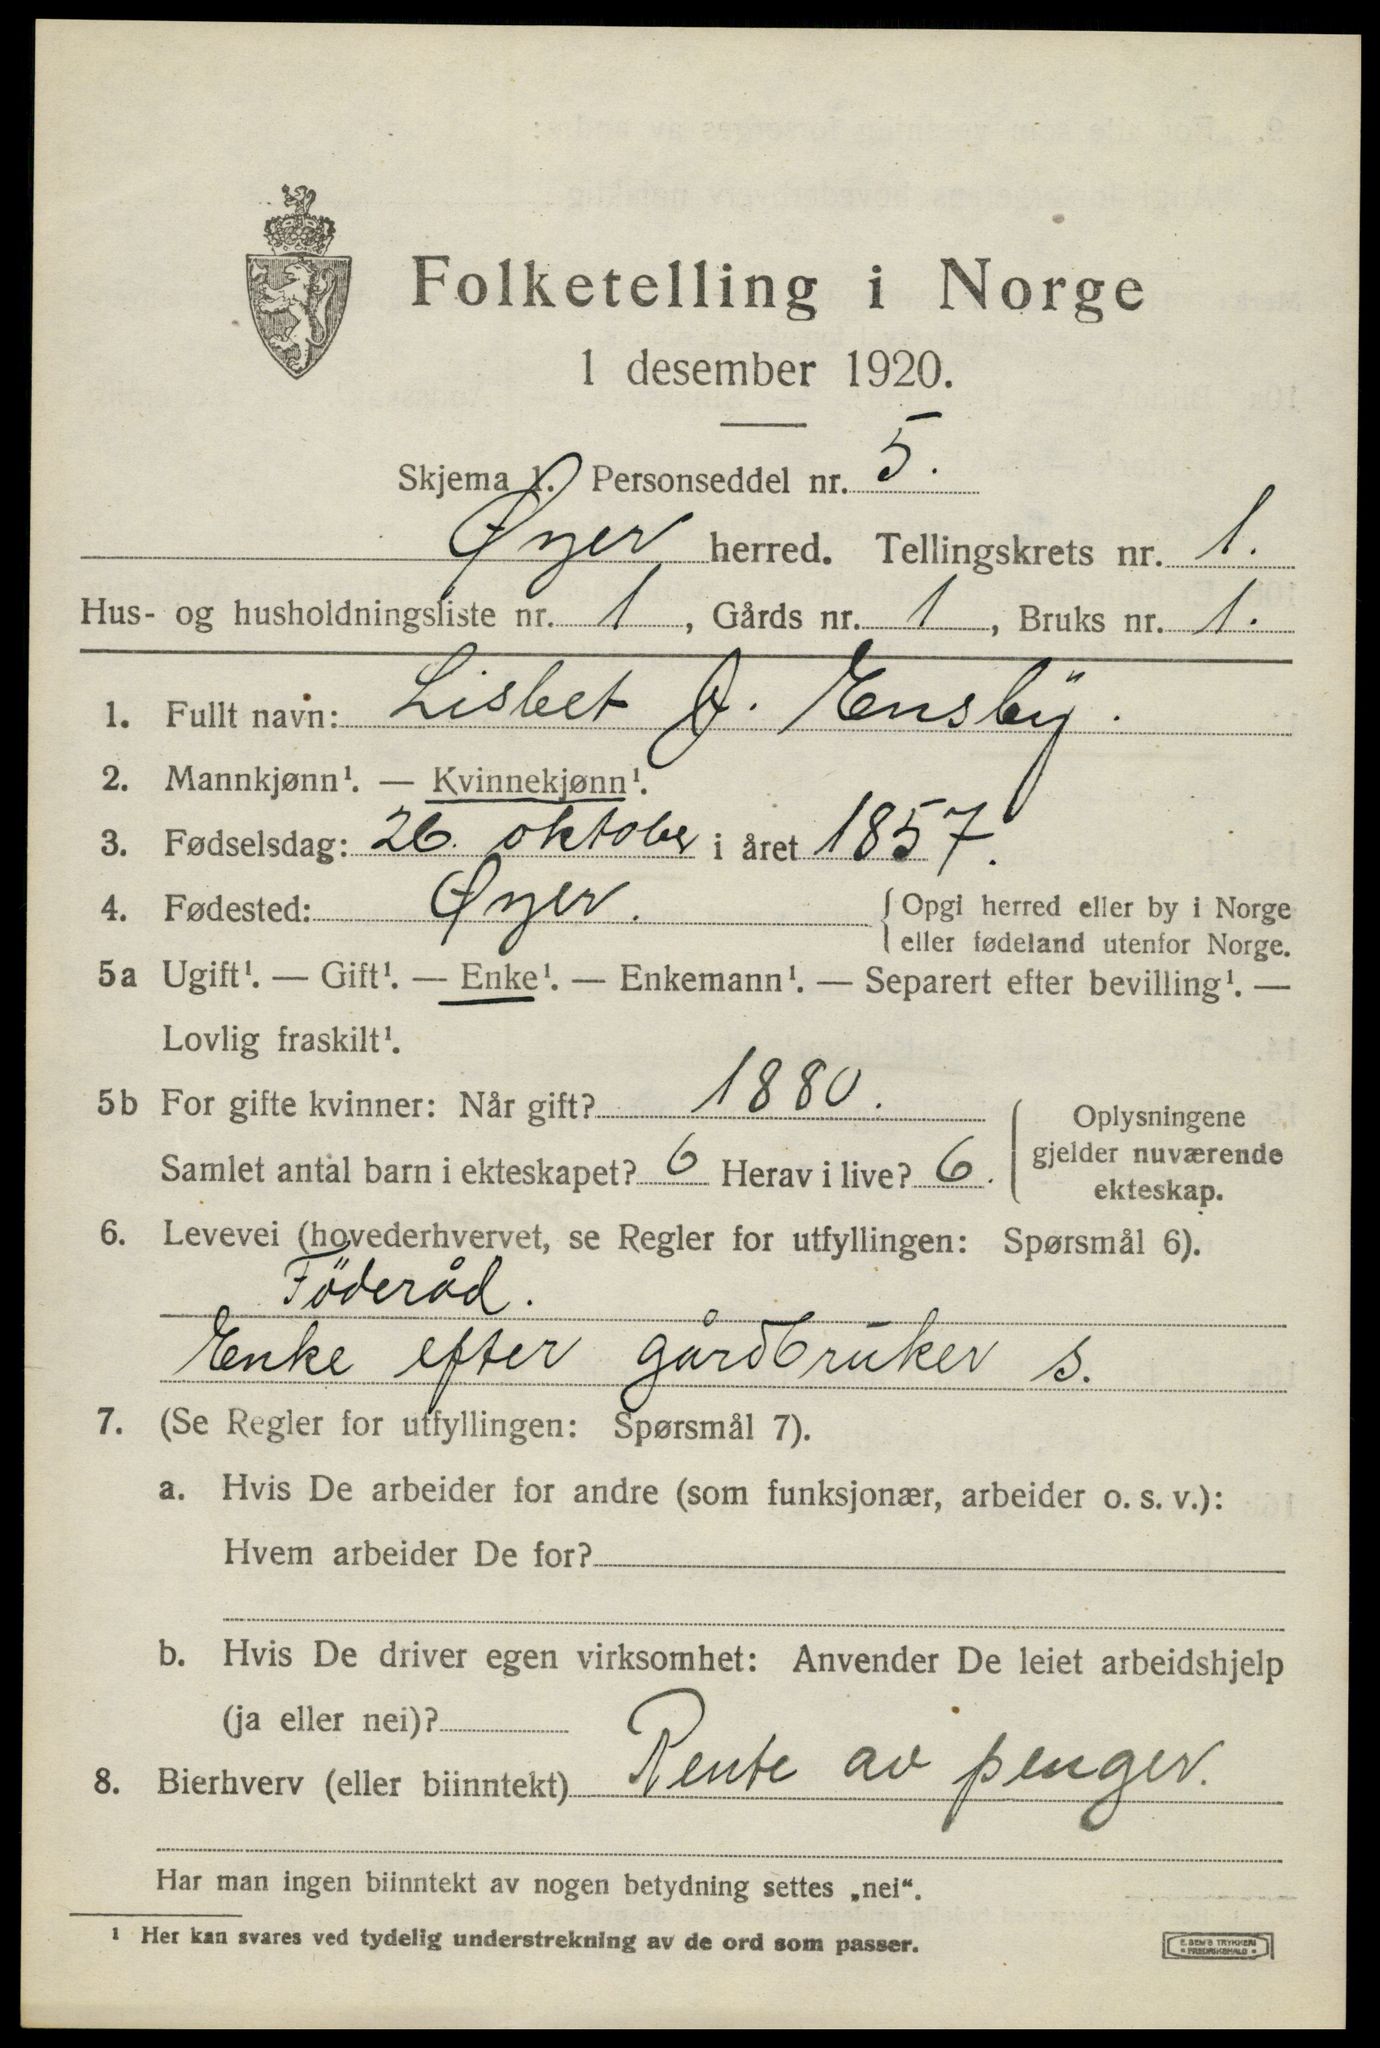 Folketelling i Norge
1 desember 1920.
Skjema 1. Personseddel nr. 5.
Øyer herred. Tellingskrets nr. 1.
Hus- og husholdningsliste nr. 1, Gårds nr. 1, Bruks nr. 1.
1. Fullt navn: Lisbet J. Ensby.
2. Mannkjønn¹. — Kvinnekjønn¹.
3. Fødselsdag: 26. oktober i året 1857.
4. Fødested: Øyer. { Opgi herred eller by i Norge
eller fødeland utenfor Norge.
5a Ugift¹. — Gift¹. — Enke¹. — Enkemann¹. — Separert efter bevilling¹. —
Lovlig fraskilt¹.
5b For gifte kvinner: Når gift? 1880.
Samlet antal barn i ekteskapet? 6 Herav i live? 6.
Oplysningene
gjelder nuværende
ekteskap.
6. Levevei (hovederhvervet, se Regler for utfyllingen: Spørsmål 6).
Föderåd.
Enke efter gårdbruker s.
7. (Se Regler for utfyllingen: Spørsmål 7).
a. Hvis De arbeider for andre (som funksjonær, arbeider o. s. v.):
Hvem arbeider De for?
b. Hvis De driver egen virksomhet: Anvender De leiet arbeidshjelp
(ja eller nei)?
8. Bierhverv (eller biinntekt) Rente av penger.
Har man ingen biinntekt av nogen betydning settes „nei“.
¹ Her kan svares ved tydelig understrekning av de ord som passer.
E. SEM'S TRYKKERI
FREDRIKSHALD